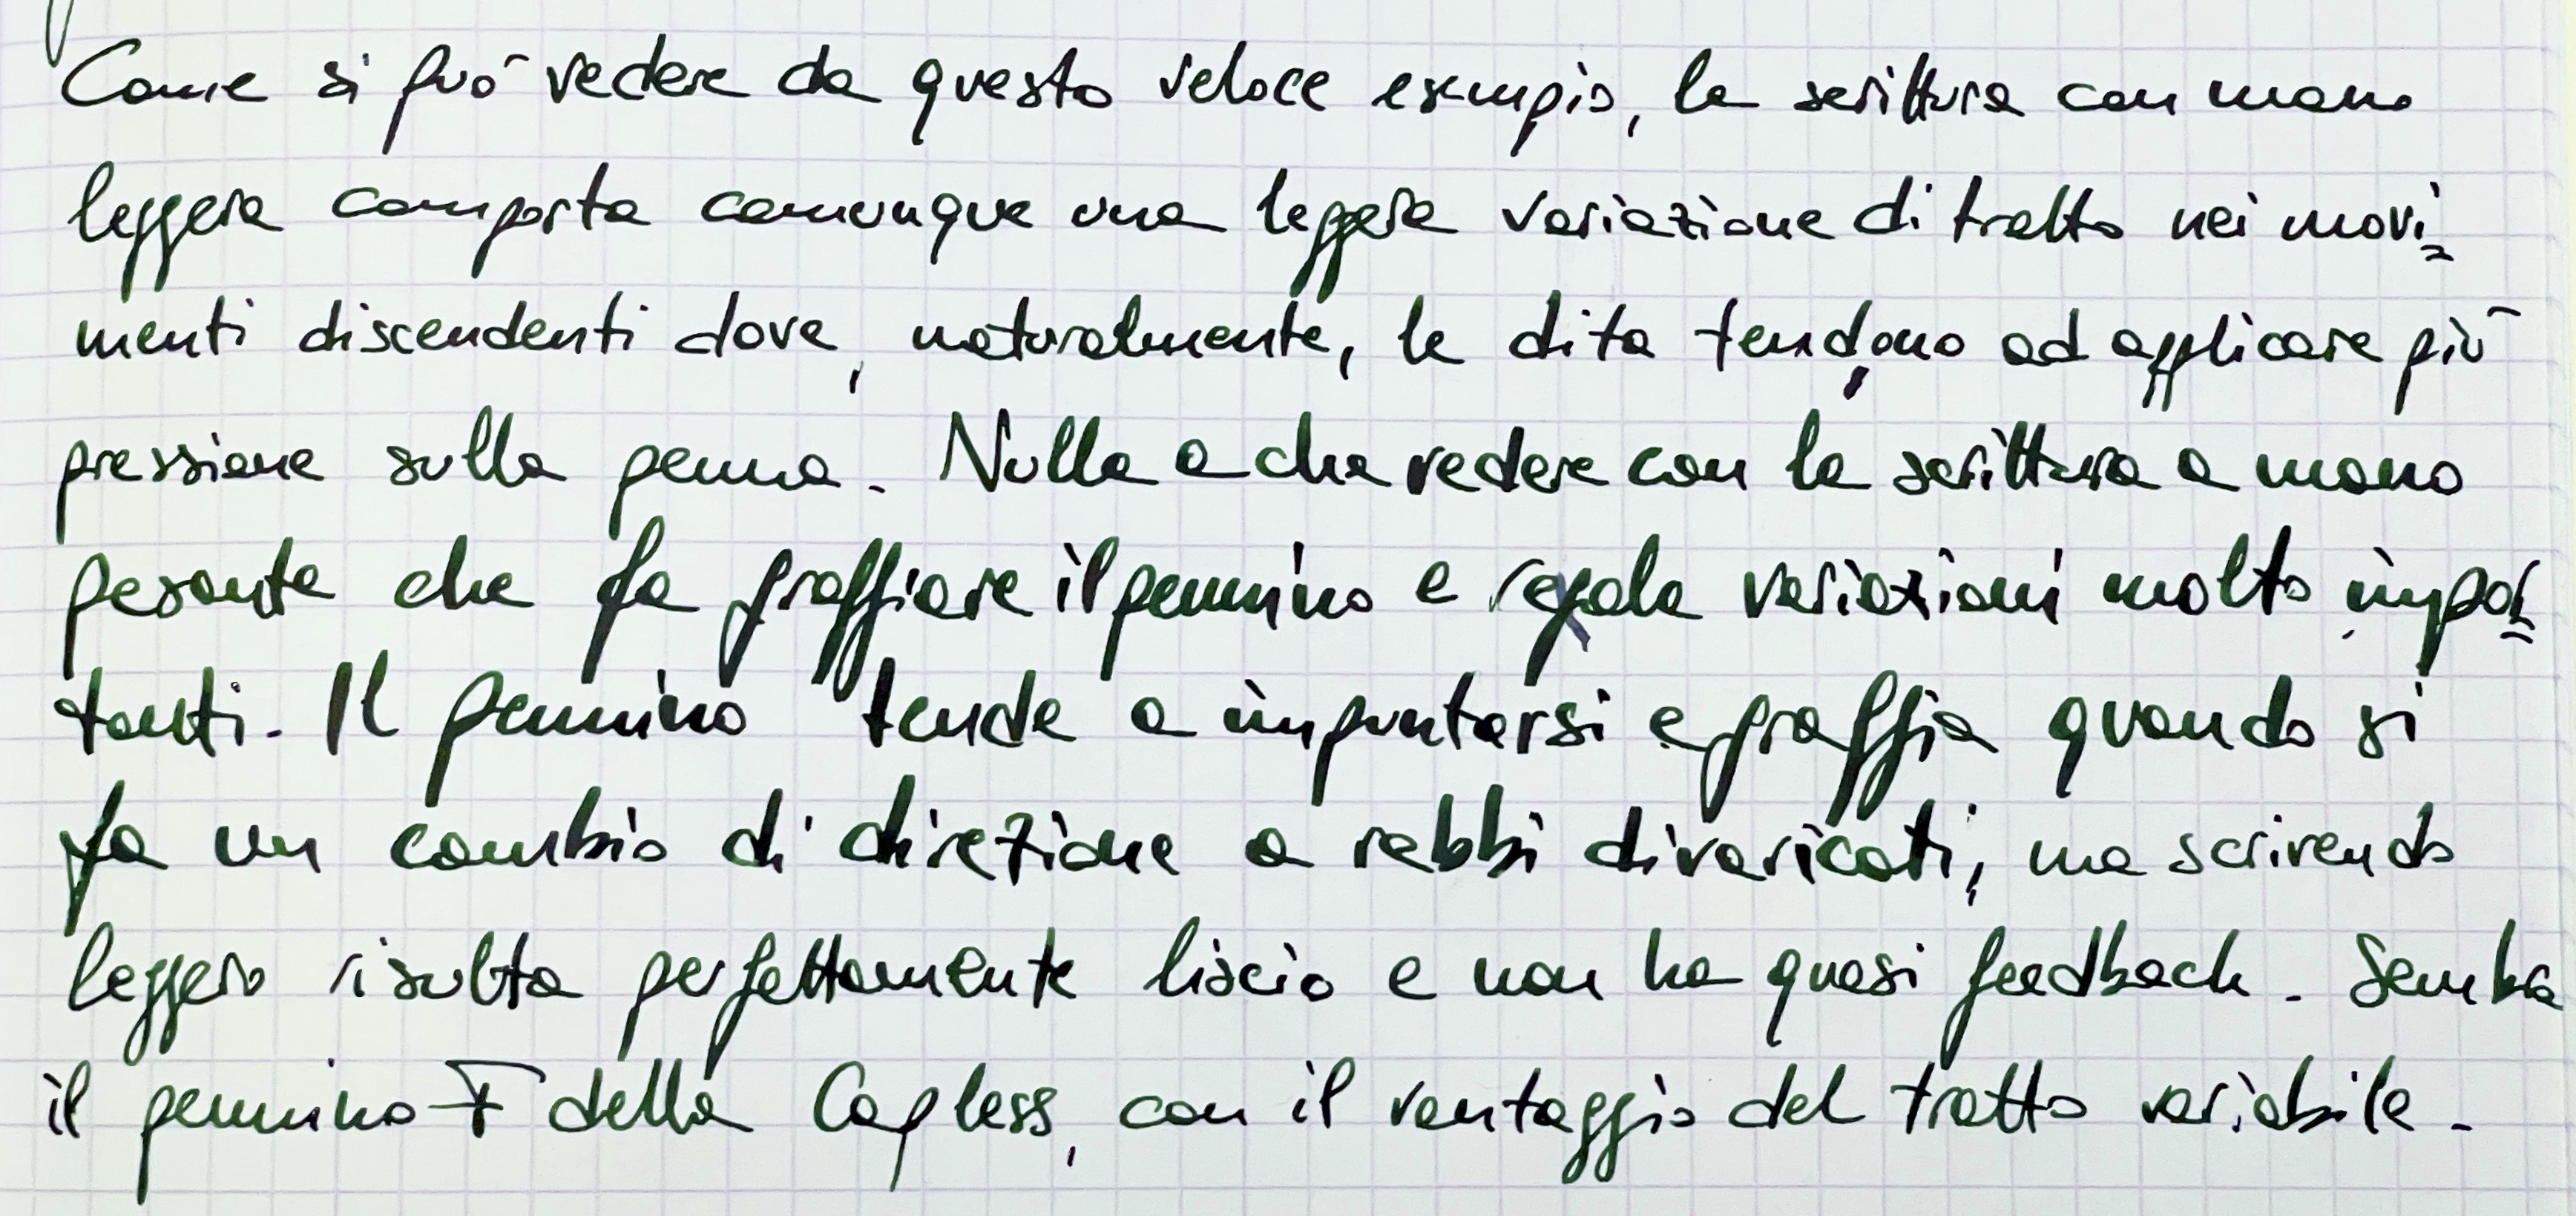 Come si può vedere da questo veloce esempio, la scrittura con mano
leggera comporta comunque una leggera variazione di tratto nei movi=
menti discendenti dove, naturalmente, le dita tendono ad applicare più
pressione sulla penna. Nulla a che vedere con la scrittura a mano
pesante che fa graffiare il pennino e regala variazioni molto impor=
tanti. Il pennino tende a impuntarsi e graffia quando si
fa un cambio di direzione a rebbi divaricati, ma scrivendo
leggero risulta perfettamente liscio e non ha quasi feedback. Sembra
il pennino F della Capless, con il vantaggio del tratto variabile.